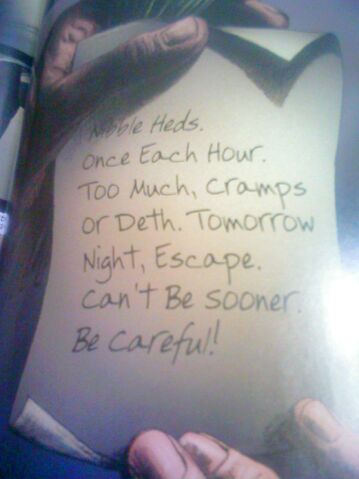 Nibble Heds.
Once Each Hour.
Too Much, Cramps
or Deth. Tomorrow
Night, Escape.
Can't Be Sooner.
Be Careful!